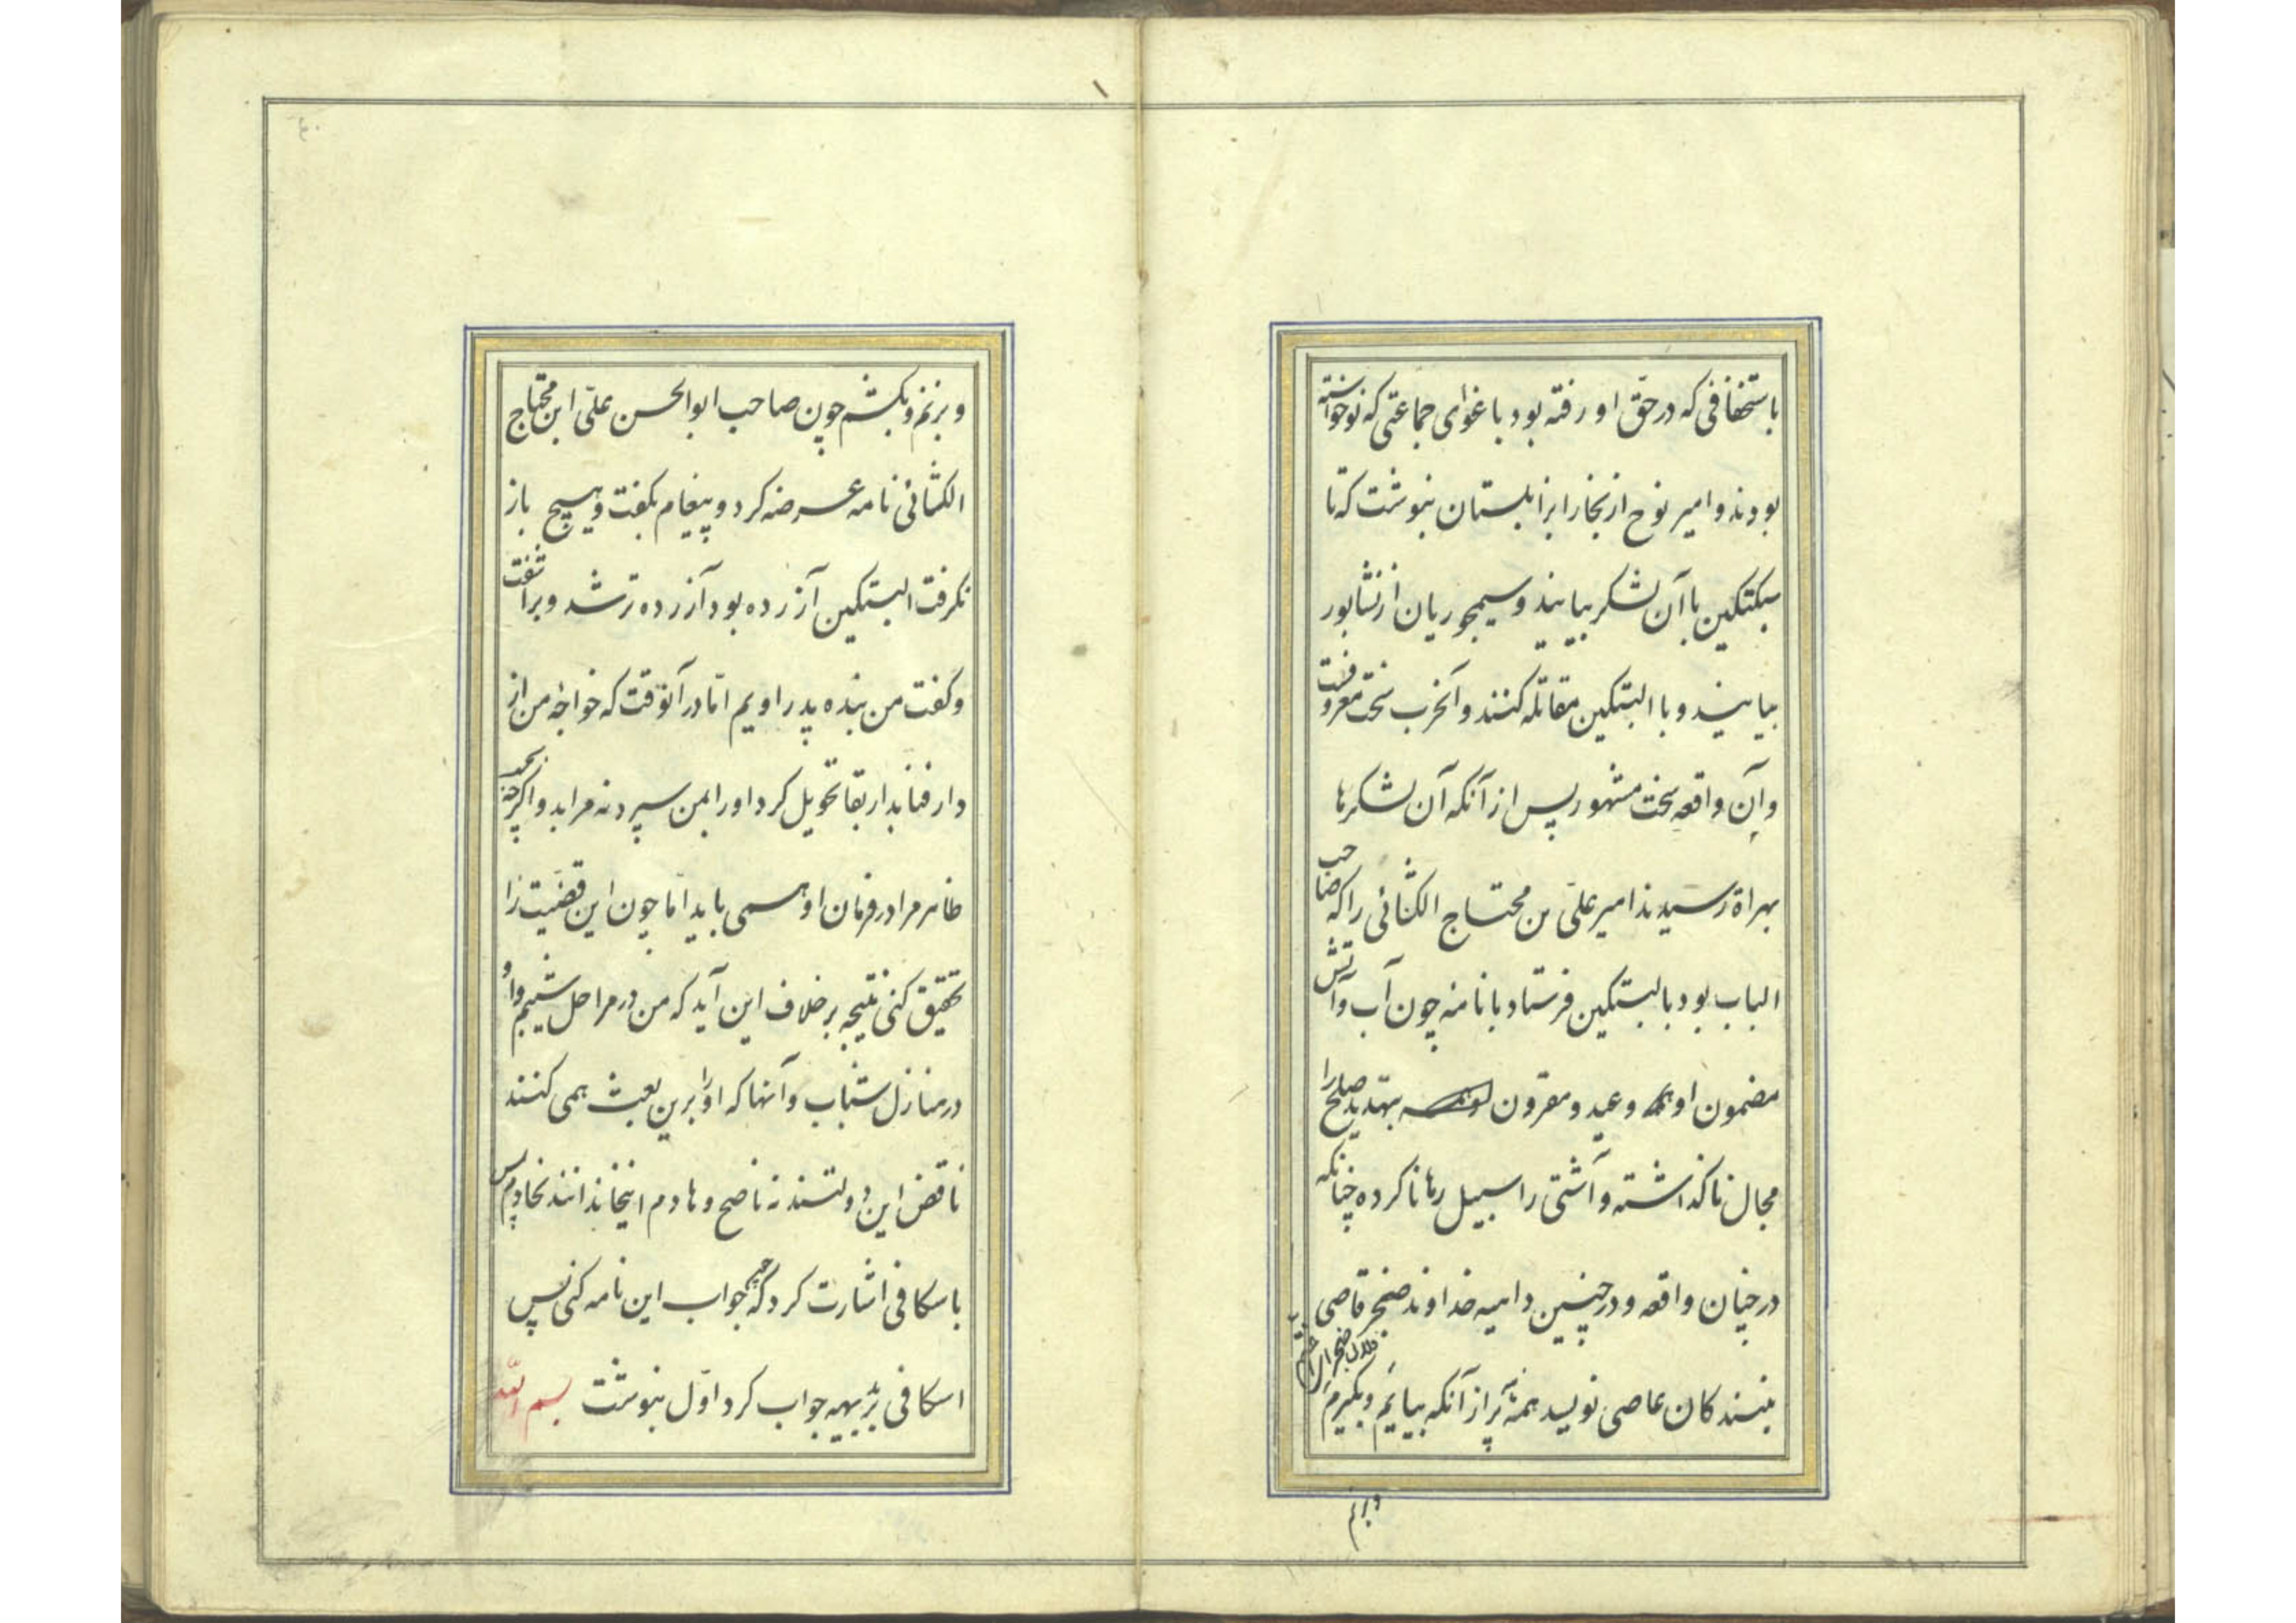 باستخفافی که در حق او رفته بود باغوای جماعتی که نوخواسته
بودند و امیر نوح از بخارا بزابلستان بنوشت که تا
سبکتکین با آن لشکر بیایند و سیمجوریان از نشابور
بیایند و با البتکین مقاتله کنند و آنحرب سخت معروفست
و آن واقعه سخت مشهور پس از آنکه آن لشکرها
بهراة رسیدند امیر علی بن محتاج الکشائی را که صاحب
الباب بود بالبتکین فرستاد با نامه چون آب و آتش
مضمون او همه وعید و مقرون بتهدید صلح را
مجال ناگذاشته و آشتی را سبیل رها ناکرده چنانکه
در چنان واقعه و در چنین داهیه خداوند ضجر قاصی
ببندکان عاصی نویسد همه پر از آنکه بیایم و بکیرم
و بزنم
و بزنم و بکشم چون صاحب ابوالحسن علی ابن محتاج
الکشائی نامه عرضه کرد و پیغام بکفت و هیچ باز
نکرفت البتکین آزرده بود آزرده تر شد و برآشفت
و کفت من بنده پدر اویم اما در آنوقت که خواجه من از
دار فنا بدار بقا تحویل کرد او را بمن سپرد نه مرا بدو و اکرچه
ظاهر مرا در فرمان او همی باید اما چون این قضیت را
تحقیق کنی نتیجه بر خلاف این آید که من در مراحل شیبم و او
در منازل شباب و آنها که او را برین بعث همی کنند
ناقض این دولتند نه ناصح و هادم اینخاندانند نخادم پس
باسکافی اشارت کرد که جواب این نامه کنی پس
اسکافی بر بدیهه جواب کرد اول بنوشت بسم الله